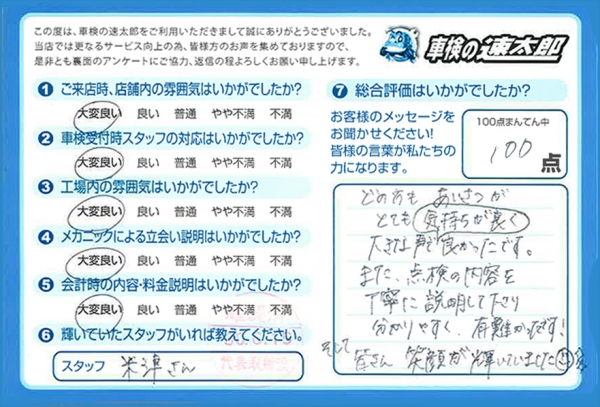 この度は、車検の速太郎をご利用いただきまして誠にありがとうございました。
当店では更なるサービス向上の為、皆様方のお声を集めておりますので、
是非とも裏面のアンケートにご協力、返信の程よろしくお願い申し上げます。
車検の速太郎
1 ご来店時、店舗内の雰囲気はいかがでしたか?
大変良い 良い 普通 やや不満 不満
2 車検受付時スタッフの対応はいかがでしたか?
大変良い 良い 普通 やや不満 不満
3 工場内の雰囲気はいかがでしたか?
大変良い 良い 普通 やや不満 不満
4 メカニックによる立会い説明はいかがでしたか?
大変良い 良い 普通 やや不満 不満
5 会計時の内容・料金説明はいかがでしたか?
大変良い 良い 普通 やや不満 不満
6 輝いていたスタッフがいれば教えてください。
スタッフ 米津さん
7 総合評価はいかがでしたか?
お客様のメッセージを
お聞かせください!
皆様の言葉が私たちの
力になります。
100点まんてん中
100 点
どの方も あいさつが
とても 気持ちが良く
大きな声で良かったです。
また、点検の内容を
丁寧に説明して下さり
分かりやすく、有難かったです!
そして 皆さん 笑顔が輝いていました